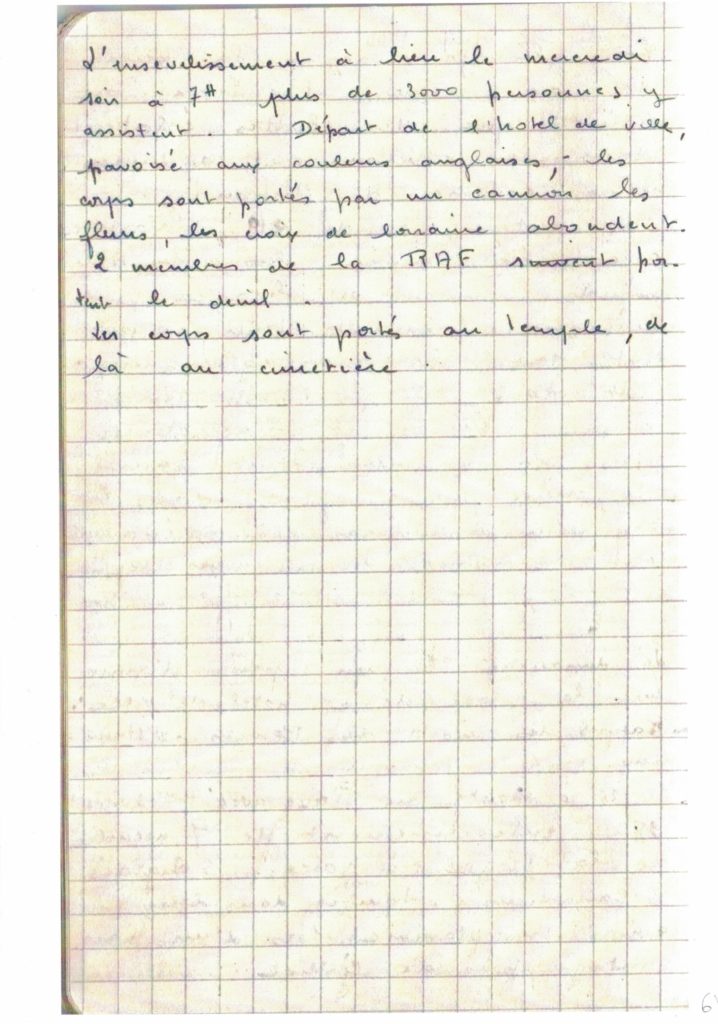 L'ensevelissement à lieu le mercredi
soir à 7H plus de 3000 personnes y
assistent. Départ de l'hotel de ville,
pavoisé aux couleurs anglaises, - les
corps sont portés par un camion, les
fleurs, les croix de lorraine abondent.
2 membres de la RAF suivent por-
tent le deuil.
Les corps sont portés au temple, de
là au cimetière.
6